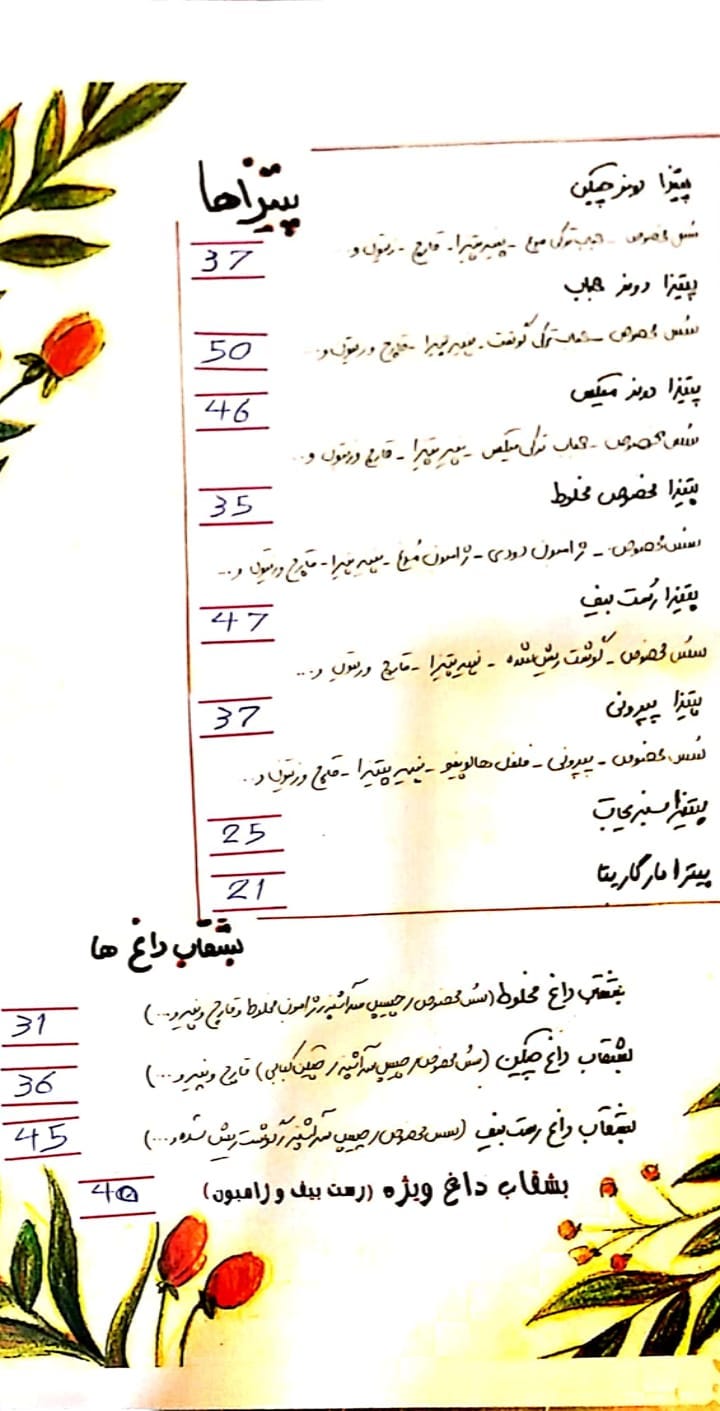 پیتزاها
پیتزا دونر چیکن
سس مخصوص - کباب ترکی مرغ - پنیر پیتزا - قارچ - زیتون و...
37
پیتزا دونر کباب
سس مخصوص - کباب ترکی گوشت - پنیر پیتزا - قارچ و زیتون و...
50
پیتزا دونر میکس
46
سس مخصوص - کباب ترکی میکس - پنیر پیتزا - قارچ و زیتون و...
پیتزا مخصوص مخلوط
35
سس مخصوص - ژامبون دودی - ژامبون مرغ - پنیر پیتزا - قارچ و زیتون و...
پیتزا رست بیف
47
سس مخصوص - گوشت ریش شده - پنیر پیتزا - قارچ و زیتون و...
پیتزا پپرونی
37
سس مخصوص - پپرونی - فلفل هالوپینو - پنیر پیتزا - قارچ و زیتون و...
پیتزا سبزیجات
25
پیتزا مارگاریتا
21
بشقاب داغ ها
بشقاب داغ مخلوط (سس مخصوص / چیپس سرآشپز / ژامبون مخلوط و قارچ و پنیر و...)
31
بشقاب داغ چیکن (سس مخصوص / چیپس سرآشپز / چیکن کبابی) قارچ و پنیر و...)
36
بشقاب داغ رست بیف (سس مخصوص / چیپس سرآشپز / گوشت ریش شده و...)
45
بشقاب داغ ویژه (رست بیف و ژامبون)
40